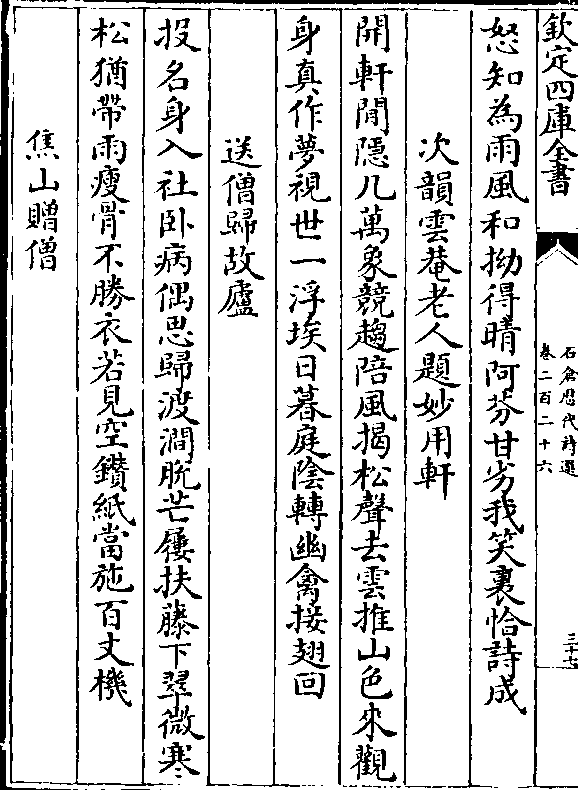 欽定四庫全書
石倉歴代詩選
卷二百二十六
三十七
怒知為雨風和拗得晴阿芬甘劣我笑裏恰詩成
次韻雲菴老人題妙用軒
開軒閒隠几萬象競趨陪風揭松聲去雲推山色來觀
身真作夢視世一浮埃日暮庭陰轉幽禽接翅回
送僧歸故廬
投名身入社卧病偶思歸渡澗脫芒屨扶藤下翠微寒
松猶帶雨瘦骨不勝衣若見空鑽紙當施百丈機
焦山贈僧